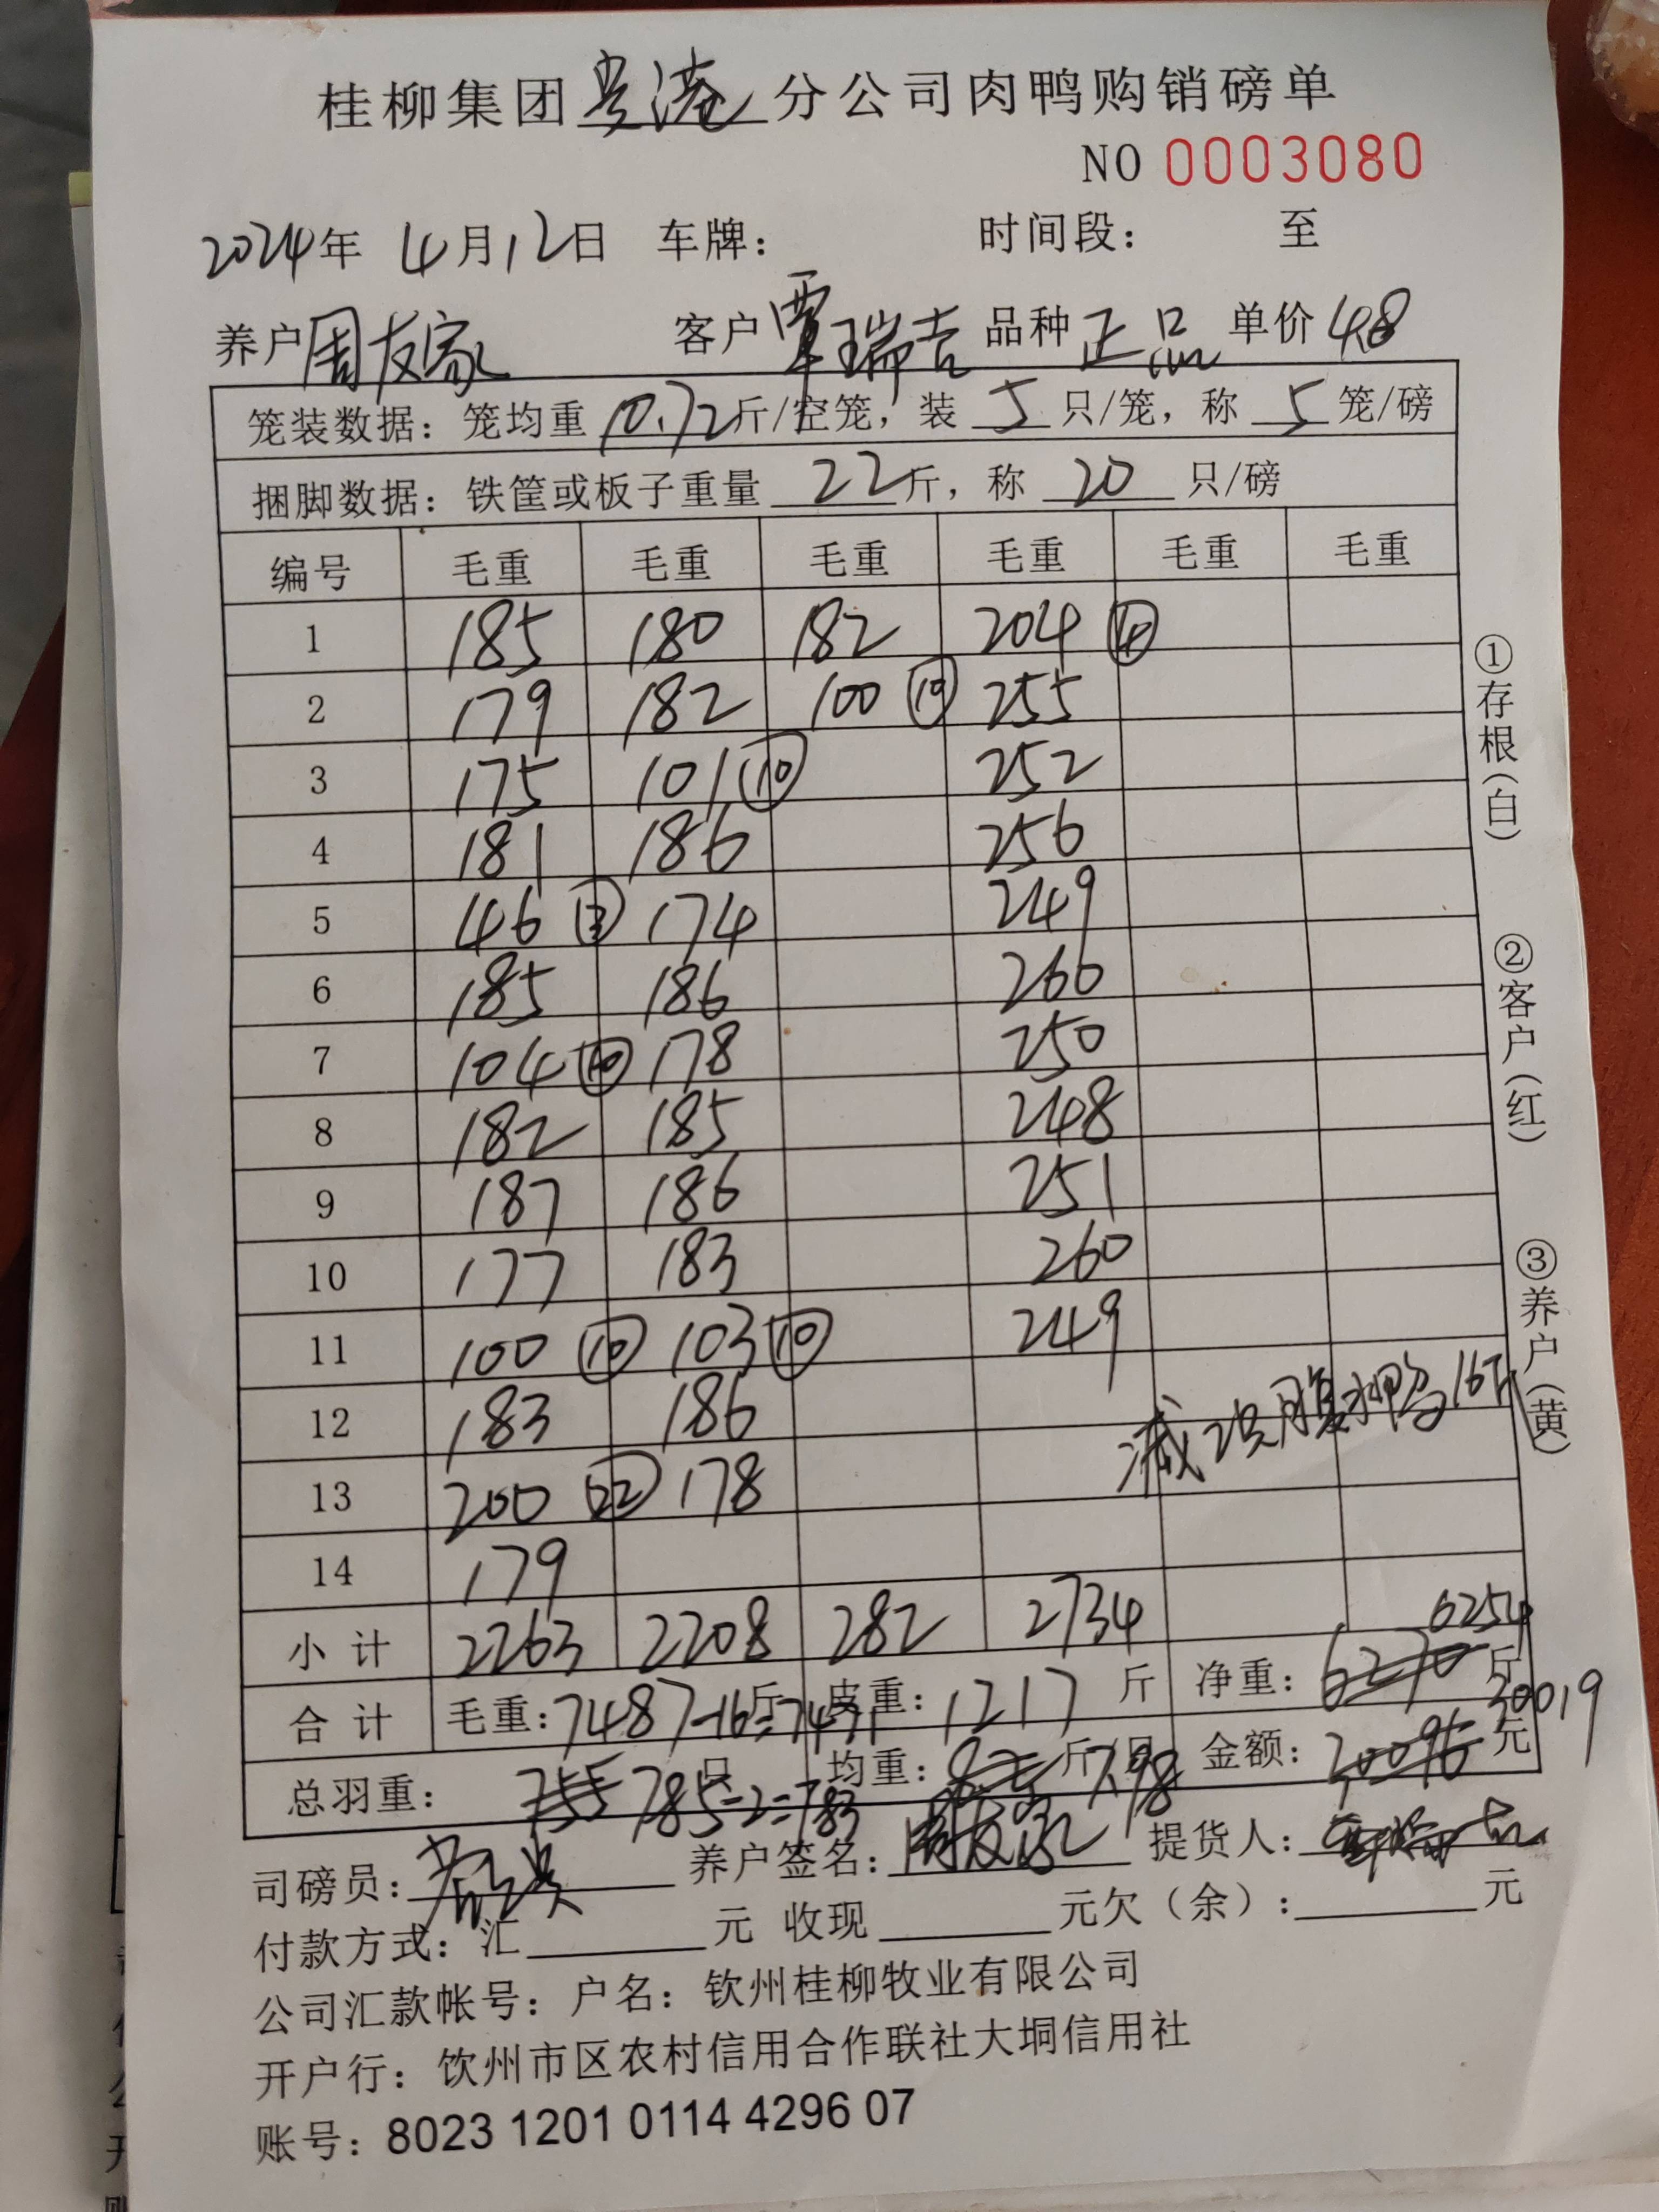 桂柳集团贵港分公司肉鸭购销磅单
NO 0003080
2024年 4月12日 车牌： 时间段： 至
养户 周友家 客户 覃瑞吉 品种 正品 单价 4.8
笼装数据：笼均重 10.72 斤/空笼，装 5 只/笼，称 5 笼/磅
捆脚数据：铁筐或板子重量 22 斤，称 20 只/磅
编号 毛重 毛重 毛重 毛重 毛重 毛重
1 185 180 182 204
2 179 182 100 ⑩ 255
3 175 101 ⑩ 252
4 181 186 256
5 46 174 249
6 185 186 260
7 104 ⑩ 178 250
8 182 185 248
9 187 186 251
10 177 183 260
11 100 ⑩ 103 ⑩ 249
12 183 186 减2只腹水鸭16斤
13 200 ㉒ 178
14 179
小计 2263 2208 282 2734 6254
合计 毛重：7487-16=7471 斤 皮重：1217 斤 净重：6270 斤
30019
总羽重： 755 785-2=783 只 均重： 斤/只 7.98 金额：30096 元
司磅员： 养户签名：周友家 提货人：覃瑞吉
付款方式：汇 元 收现 元欠（余）： 元
公司汇款帐号：户名：钦州桂柳牧业有限公司
开户行：钦州市区农村信用合作联社大垌信用社
账号：8023 1201 0114 4296 07
①存根（白）
②客户（红）
③养户（黄）